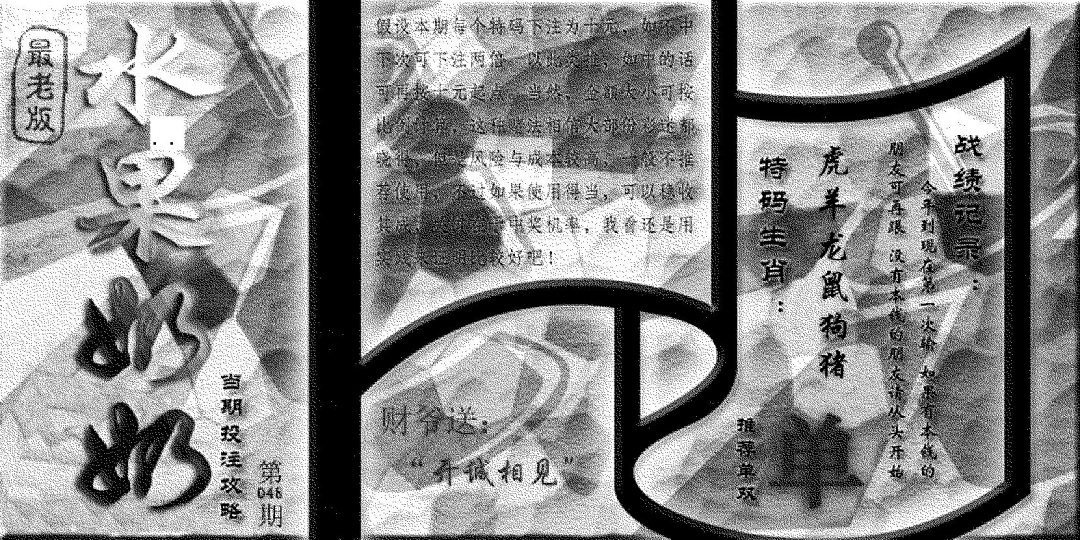 最老版
水果奶奶
当期投注攻略
第
048
期
假设本期每个特码下注为十元，如不中
下次可下注两倍，以此类推，如中的话
可再按十元起点，当然，金额大小可按
比例 这种赌法相信大部份彩迷都
晓得，但 风险与成本较高，一般不推
荐使用，不过如果使用得当，可以稳收
其成 中奖机率，我看还是用
比较好吧！
财爷送：
“开诚相见”
战绩记录：
今年到现在第一次输 如果有本钱的
朋友可再跟 没有本钱的朋友请从头开始
虎羊龙鼠狗猪
特码生肖：
推荐单双
单